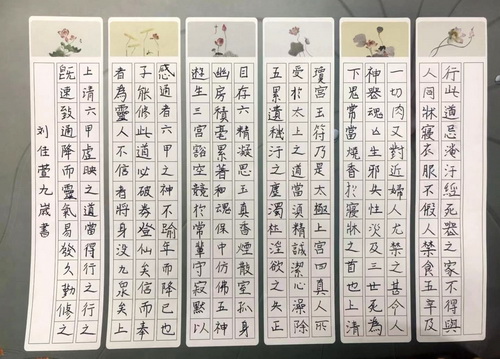 行此道忌淹汙經死喪之家不得與
人同牀寢衣服不假人禁食五辛及
一切肉又對近婦人尤禁之甚令人
神喪魂亡生邪失性災及三世死為
下鬼常當燒香於寢牀之首也上清
瓊宮玉符乃是太極上宮四真人所
受於太上之道當須精誠潔心澡除
五累遺穢汙之塵濁杜淫欲之失正
目存六精凝思玉真香煙散室孤身
幽房積毫累著和魂保中仿佛五神
遊生三宮豁空競於常輩守寂默以
感通者六甲之神不踰年而降已也
子能修此道必破券登仙矣信而奉
者為靈人不信者將身沒九泉矣上
上清六甲虛映之道當得行之行之
既速致通降而靈氣易發久勤修之
刘佳萱九歲書